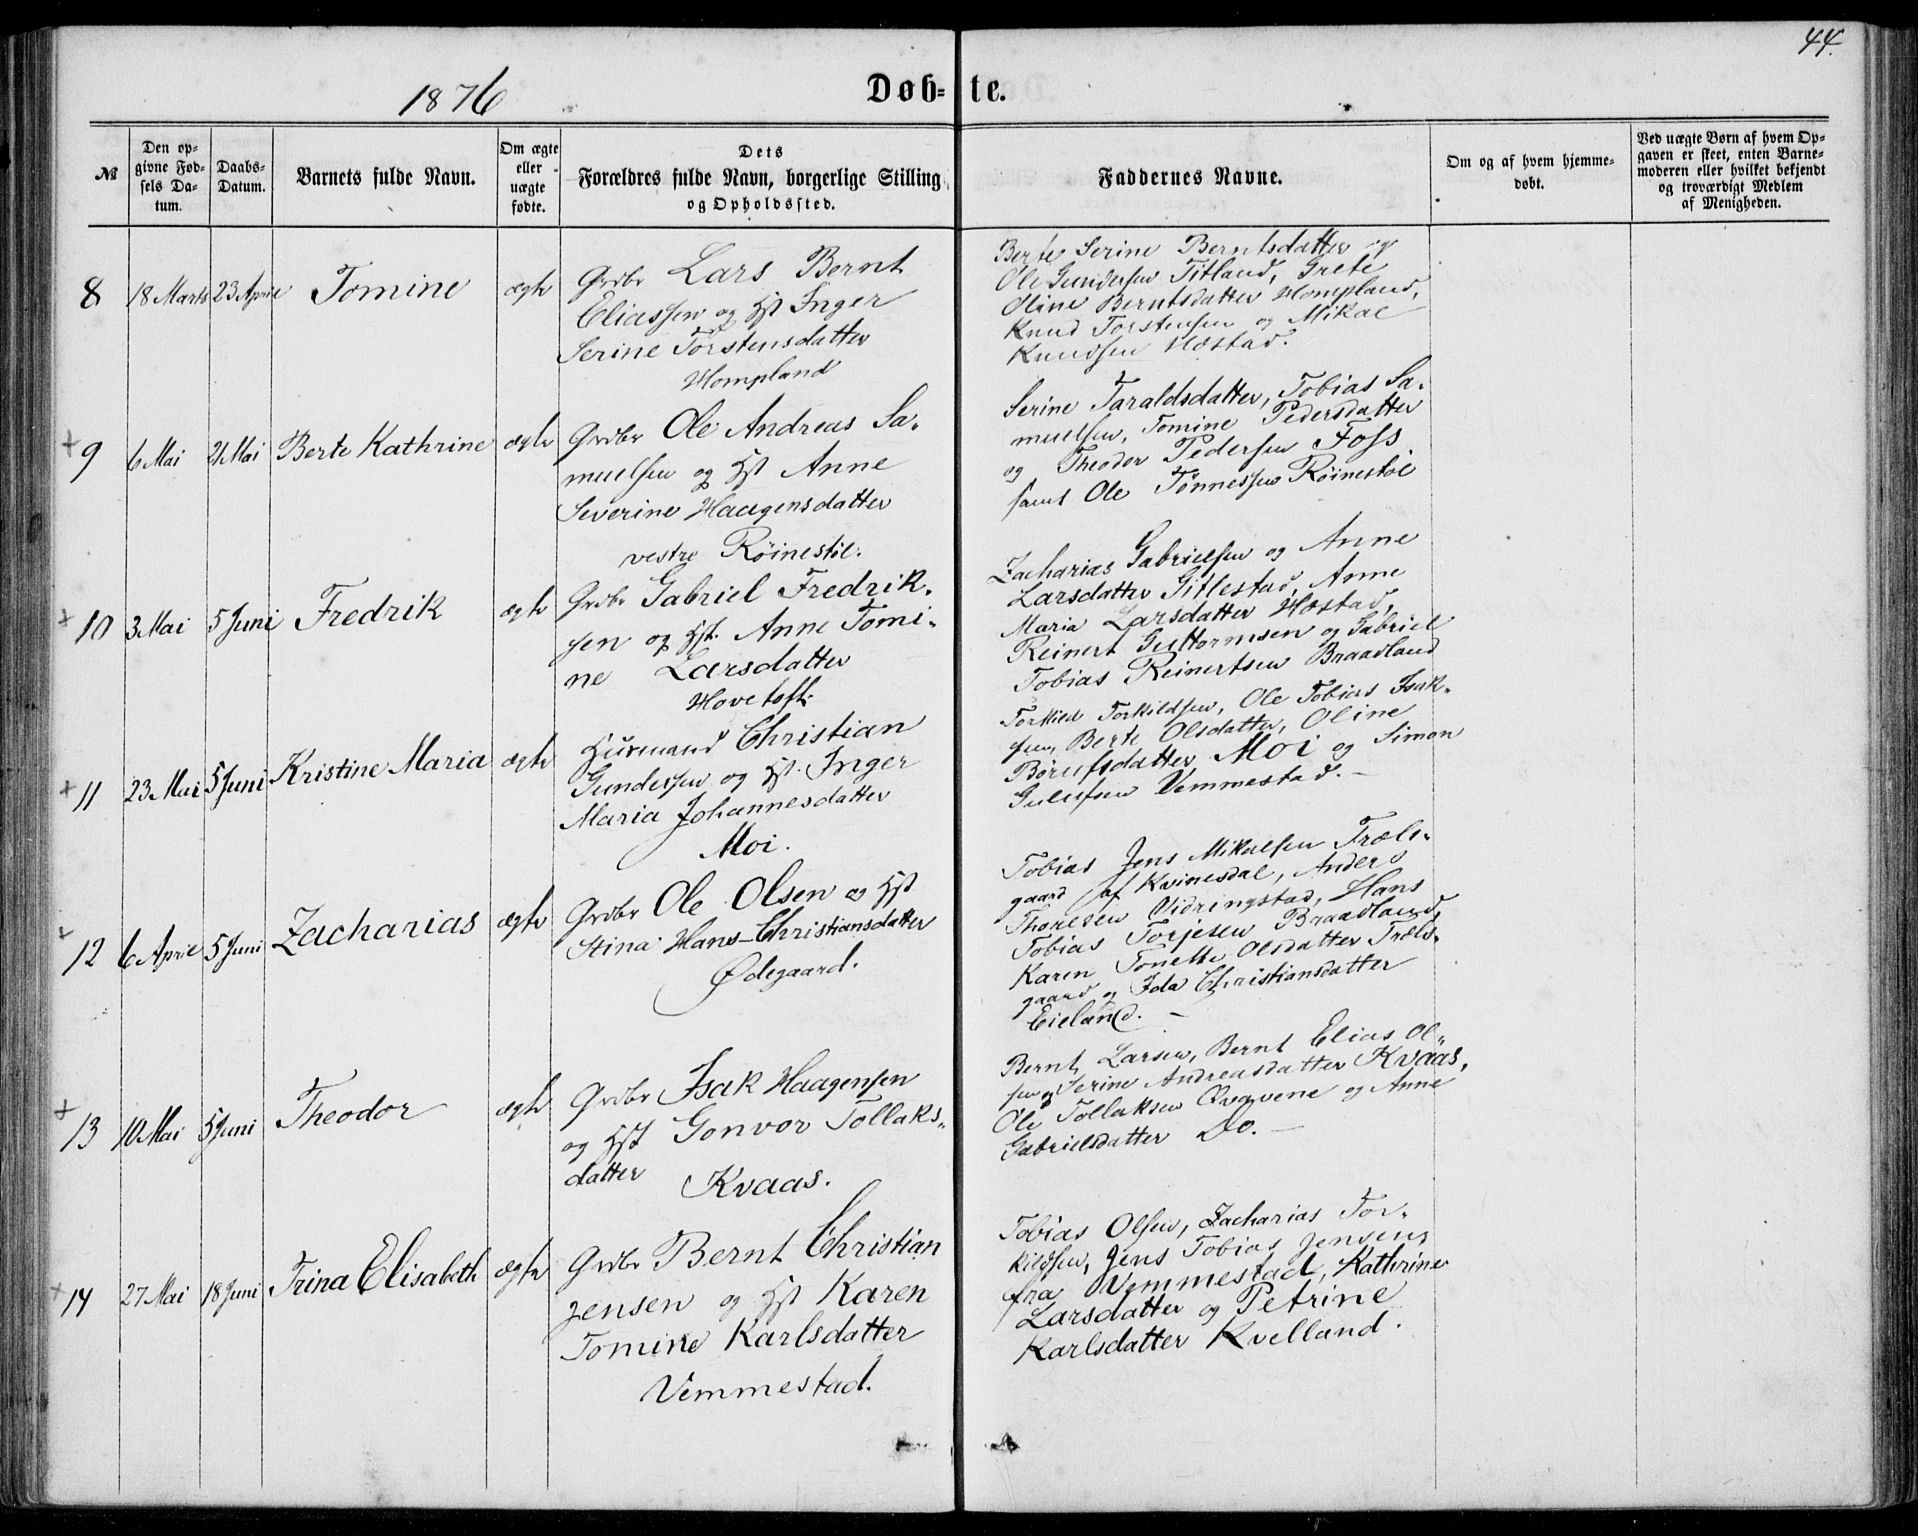 44.
1876
Døb- te.
№
Den op-
givne Fød-
sels Da-
tum.
Daabs-
Datum.
Barnets fulde Navn.
Om ægte
eller
uægte
fødte.
Dets
Forældres fulde Navn, borgerlige Stilling
og Opholdssted.
Faddernes Navne.
Om og af hvem hjemme-
døbt.
Ved uægte Børn af hvem Op-
gaven er skeet, enten Barne-
moderen eller hvilket bekjendt
og troværdigt Medlem
af Menigheden.
8 18 Marts 23 April Tomine ægte
Grdbr Lars Bernt
Eliassen og Hst Inger
Serine Torstensdatter
Hompland
Berte Serine Berntsdatter og
Ole Gundersen Titland, Grete
Oline Berntsdatter Hompland,
Knud Torstensen og Mikal
Knudsen Hæstad.
9 6 Mai 21 Mai Berte Kathrine ægte
Grdbr Ole Andreas Sa-
muelsen og Hst Anne
Severine Haagensdatter
vestre Röinestöl.
Serine Taraldsdatter, Tobias Sa-
muelsen, Tomine Pedersdatter
og Theodor Pedersen Foss
samt Ole Tønnessen Röinestöl
10 3 Mai 5 Juni Fredrik ægte
Grdbr Gabriel Fredrik-
sen og Hst. Anne Tomi-
ne Larsdatter
Hovetoft.
Zacharias Gabrielsen og Anne
Larsdatter Gitlestad, Anne
Maria Larsdatter Hæstad,
Reinert Guttormsen og Gabriel
Tobias Reinertsen Braadland
11 23 Mai 5 Juni Kristine Maria ægte
Husmand Christian
Gundersen og Hst. Inger
Maria Johannesdatter
Moi.
Torkild Torkildsen, Ole Tobias Isak-
sen, Berte Olsdatter, Oline
Børufsdatter Moi og Simon
Gulufsen Vemmestad.
12 6 April 5 Juni Zacharias ægte
Grdbr Ole Olsen og Hst
Stina Hans-Christiansdatter
Ødegaard.
Tobias Jens Mikalsen Træls-
gaard af Kvinesdal, Anders
Thoresen Vidringstad, Hans
Tobias Torjesen Braadland,
Karen Tonette Olsdatter Træls-
gaard og Ida Christiansdatter
Eieland.
13 10 Mai 5 Juni Theodor ægte
Grdbr Isak Haagensen
og Hst Gonvor Tollaks-
datter Kvaas.
Bernt Larsen, Bernt Elias Ol-
sen og Serine Andreasdatter Kvaas,
Ole Tollaksen Qvavene og Anne
Gabrielsdatter Do.
14 27 Mai 18 Juni Trina Elisabeth ægte
Grdbr Bernt Christian
Jensen og Hst Karen
Tomine Karlsdatter
Vemmestad.
Tobias Olsen, Zacharias Tor-
kildsen, Jens Tobias Jensen,
fra Vemmestad, Kathrine
Larsdatter og Petrine
Karlsdatter Kvelland.